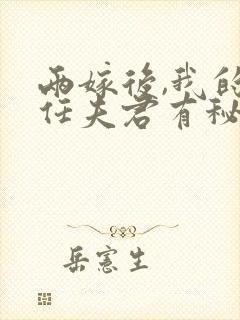 两嫁後,我的
任夫君有秘
岳宪生